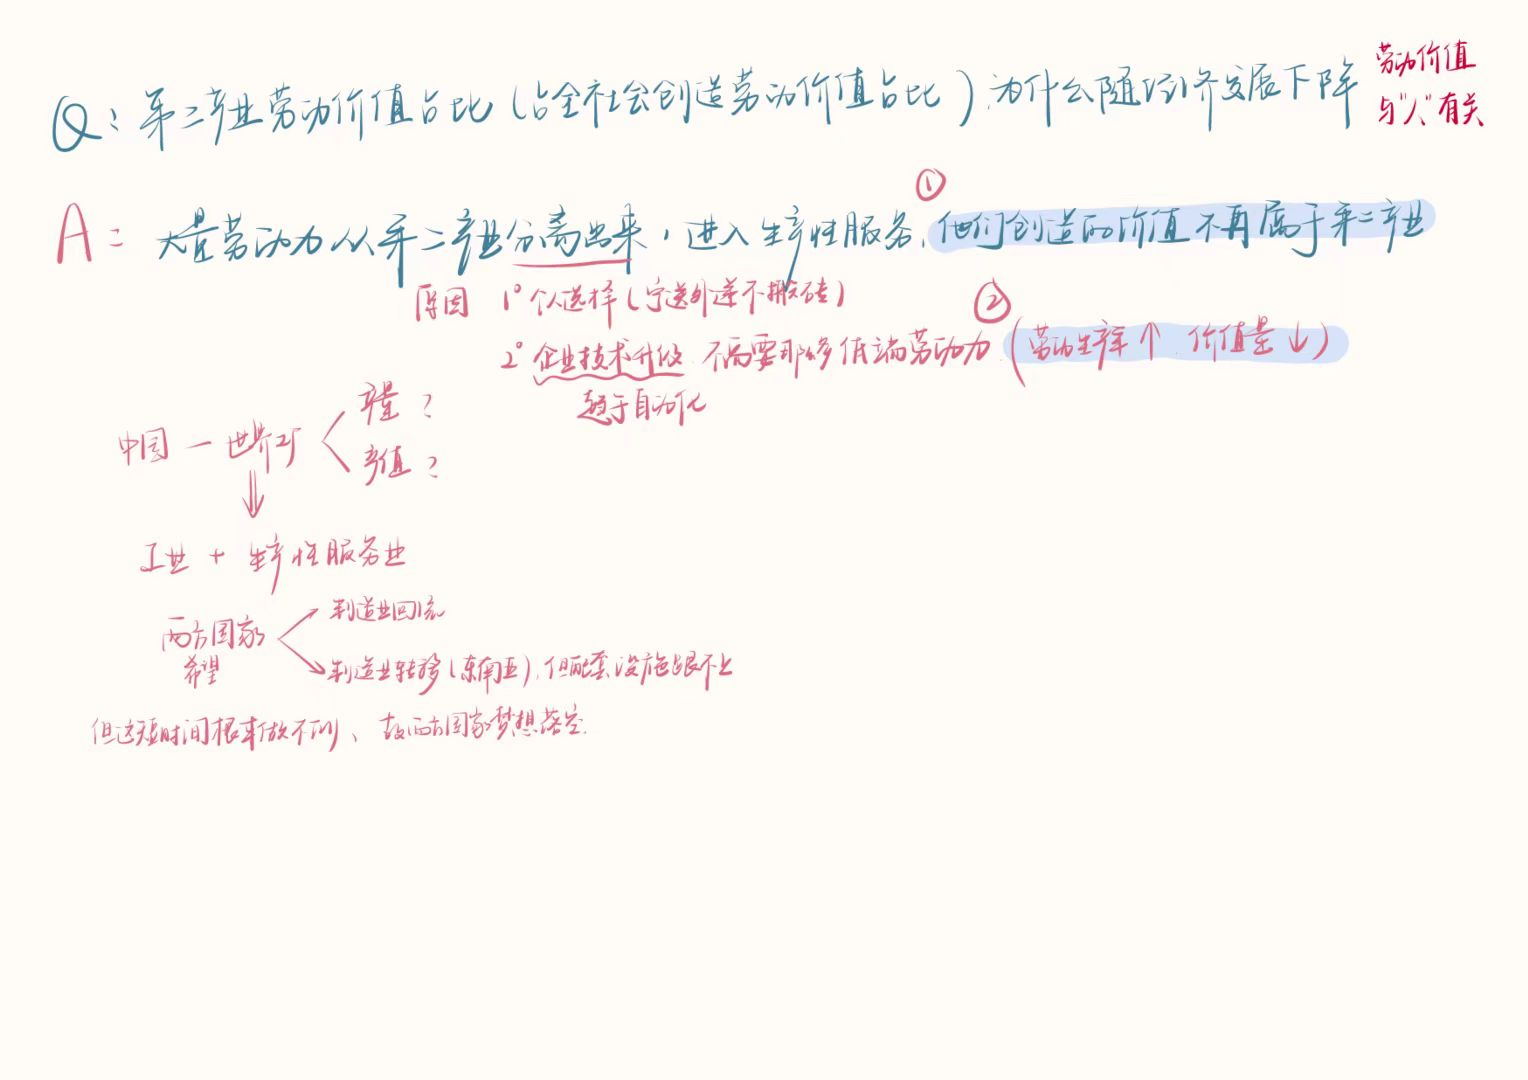 Q：第二产业劳动价值占比（占全社会创造劳动价值占比）.为什么随经济发展下降
劳动价值
与"人"有关
①
A：大量劳动力从第二产业分离出来，进入生产性服务,他们创造的价值不再属于第二产业
原因 1°个人选择（宁送外送不搬砖）
②
2°企业技术升级.不需要那么多低端劳动力.（劳动生产率↑.价值量↓）
趋于自动化
产量？
中国－世界工厂
产值？
⇓
工业＋生产性服务业
制造业回流
西方国家
希望
制造业转移（东南亚）,但配套设施跟不上
但这短时间根本做不到、故西方国家梦想落空.